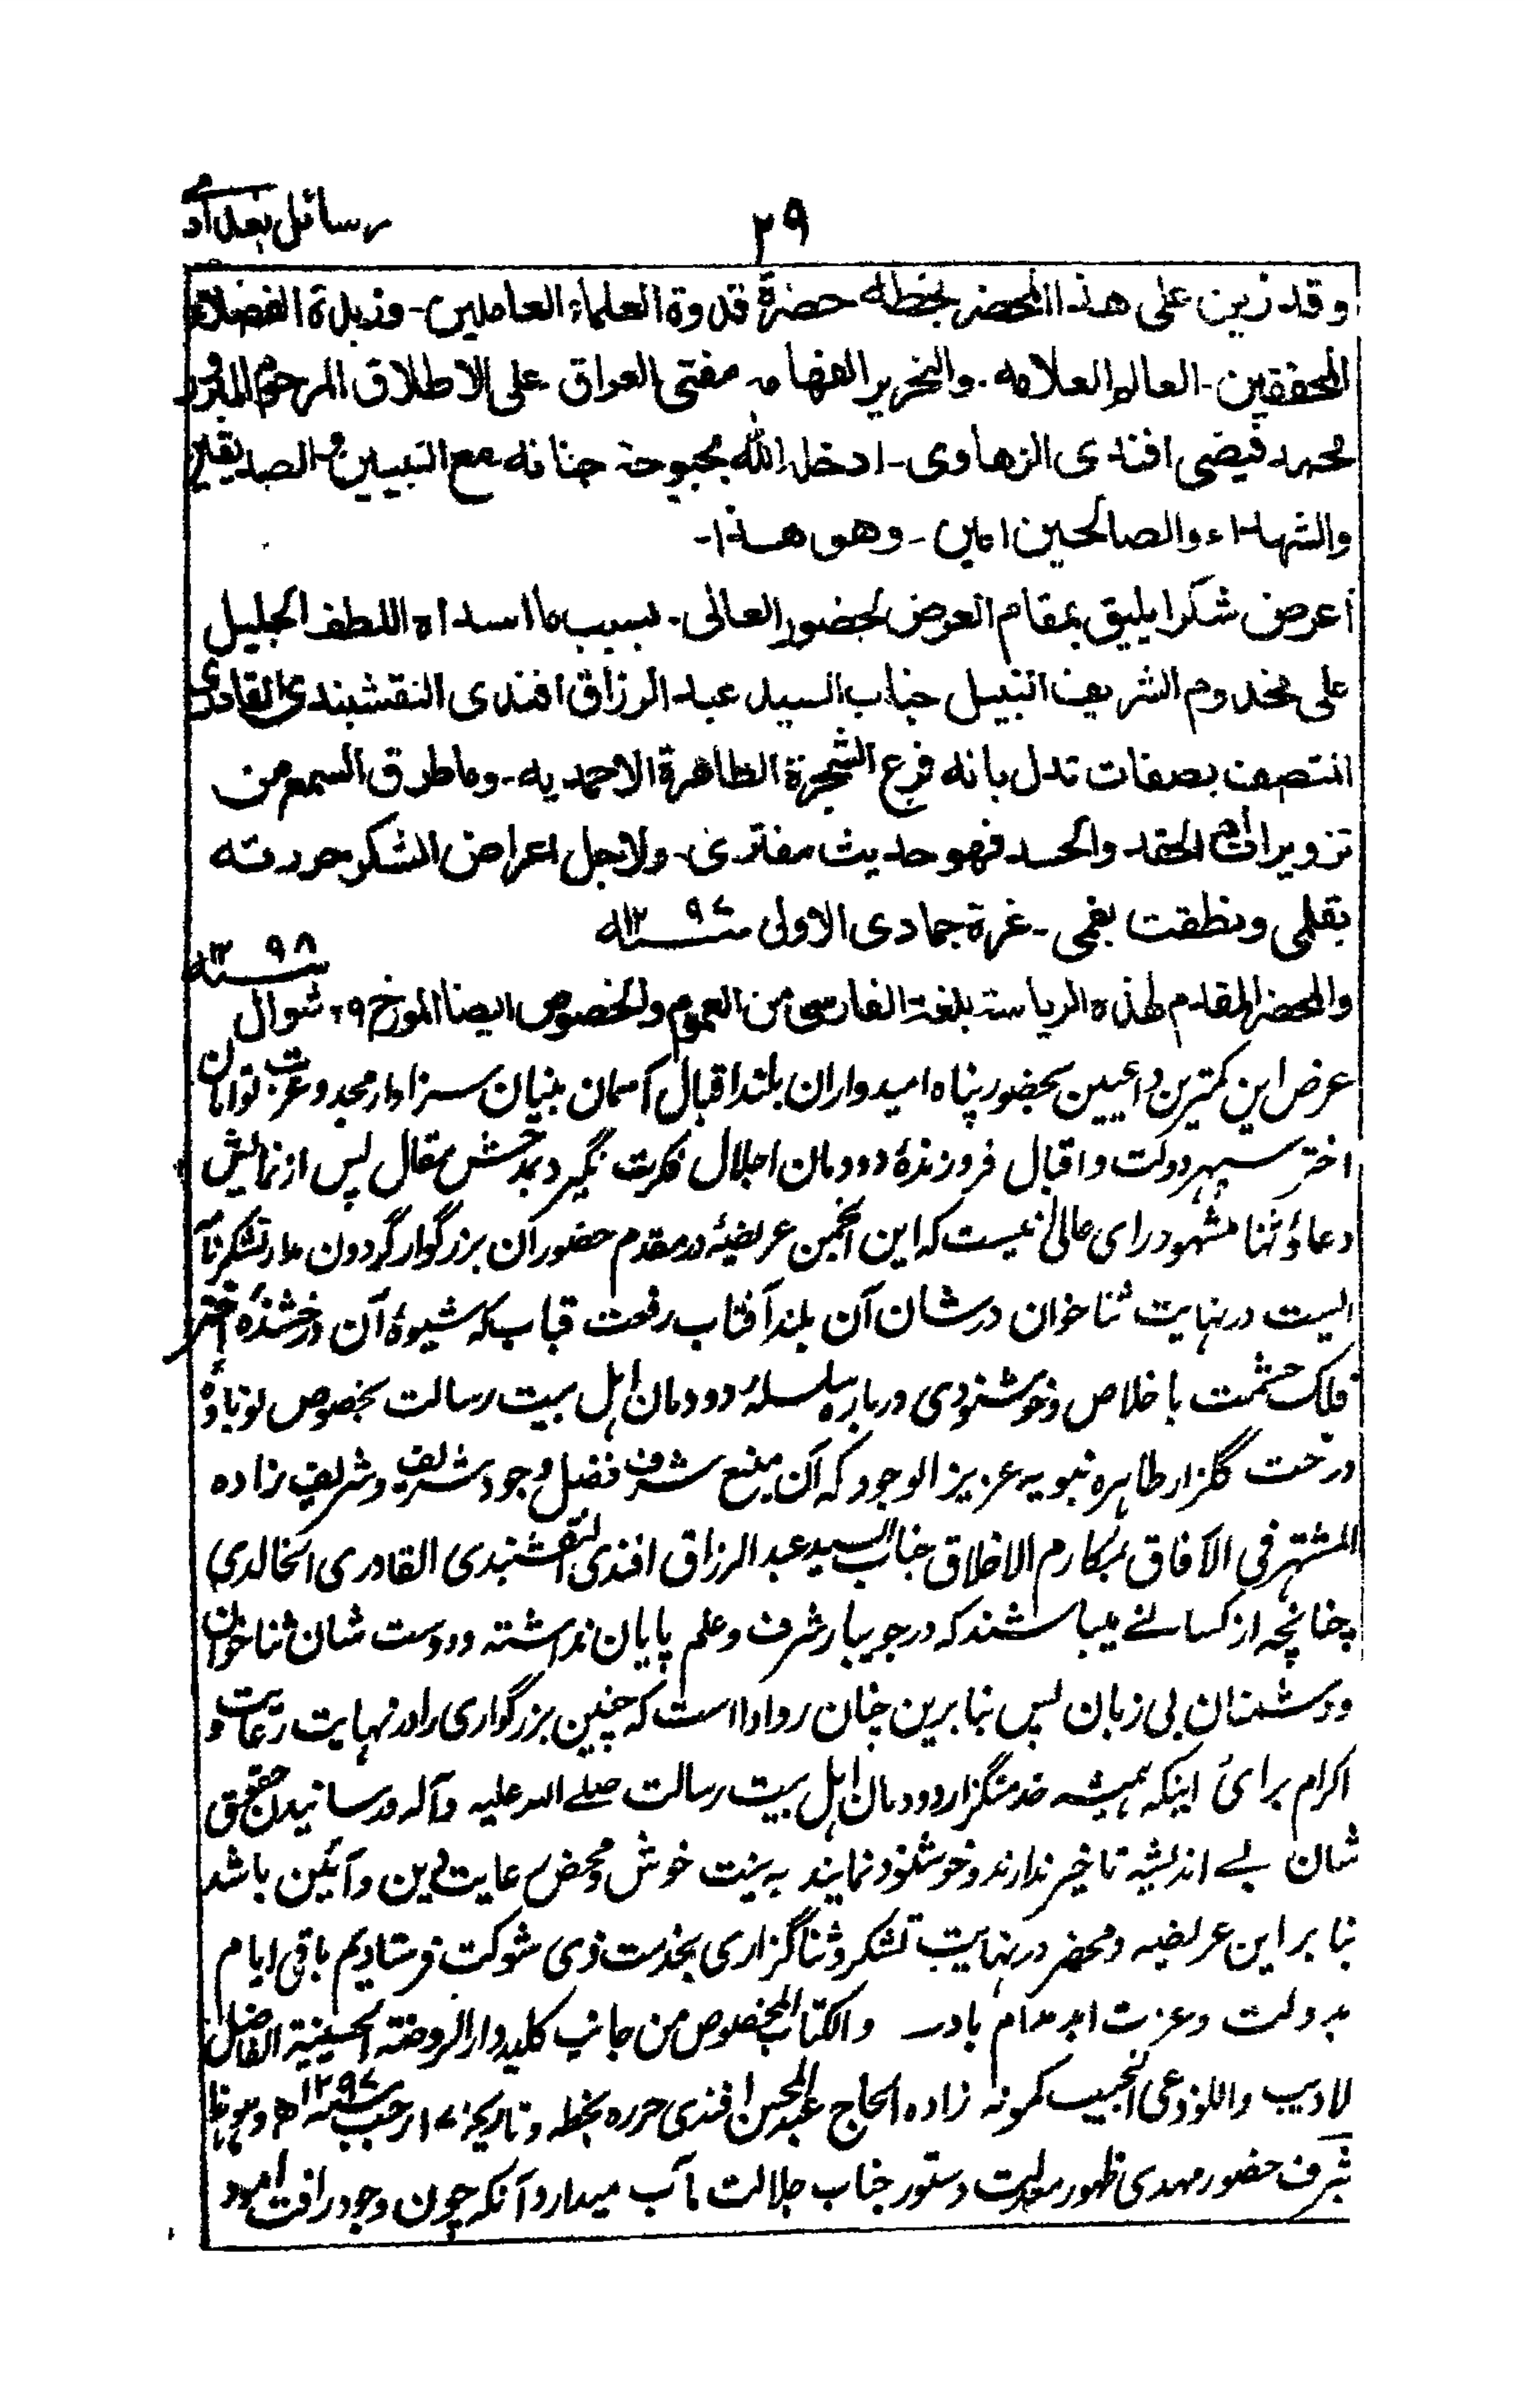 رسائل بغدادی
۲۹
وقد زین علی هذا المحضر بخطه حضرة قدوة العلماء العاملین - وزبدة الفضلاء
المحققین - العالم العلامه - والنحریر الفهامه مفتی العراق علی الاطلاق المرحوم المبرور
محمد فیضی افندی الزهاوی - ادخله الله بحبوحة جنانه مع النبیین والصدیقین
والشهداء والصالحین امین - وهو هذا -
أعرض شکرا یلیق بمقام العرض لحضور العالی - بسبب ما اسداه اللطف الجلیل
علی مخدوم الشریف النبیل جناب السید عبد الرزاق افندی النقشبندی القادری
المتصف بصفات تدل بانه فرع الشجرة الطاهرة الاحمدیه - وما طرق السمع من
تزویرات الحقد والحسد فهو حدیث مفتری - ولاجل اعراض الشکر حررته
بقلمی ونطقت بفمی - غرة جمادی الاولی سنه ۱۲۹۷
والمحضر المقدم لهذه الریاسة بلغة الفارسی من العموم والخصوص ایضا المورخ ۲۹ شوال سنه ۱۲۹۸
عرض این کمترین داعیین بحضور پناه امیدواران بلند اقبال آسمان بنیان سزاوار مجد وعزت توامان
اختر سپهر دولت واقبال فروزندهٔ دودمان اجلال فکرت نگیرد بمدحش مقال پس از نمایش
دعا وثنا مشهود رای عالی نیست که این انجمن عریضهٔ در مقدم حضور آن بزرگوار گردون مدار تشکرنامه
ایست در نهایت ثنا خوان درشان آن بلند آفتاب رفعت قباب که شیوهٔ آن درخشندهٔ اختر
فلک حشمت با خلاص وخوشنودی دربارهٔ سلسلهٔ دودمان اهل بیت رسالت بخصوص نوباوهٔ
درخت گلزار طاهره نبویه عزیز الوجود که آن منبع شرف فضل وجود شریف وشریف زاده
المشتهر فی الآفاق بمکارم الاخلاق جناب السید عبد الرزاق افندی النقشبندی القادری الخالدی
چنانچه از کسانے میباشند که در جویبار شرف وعلم پایان نداشته ودوست شان ثناخوان
ودشمنان بی زبان پس بنا برین چنان روادا است که چنین بزرگواری را در نهایت رعایت و
اکرام برائ اینکه همیشه خدمتگزار دودمان اهل بیت رسالت صلے الله علیه وآله ورسانیدن حقوق
شان بے اندیشه تاخیر ندارند وخوشنود نمایند به نیت خوش ومحض رعایت دین وآئین باشد
بنا بر این عریضه ومحضر در نهایت تشکر وثنا گزاری بخدمت ذی شوکت فرستادیم باقی ایام
بدولت وعزت ابد مدام باد والکتاب المخصوص من جانب کلیددار الروضة الحسینیة الفاضل
الادیب واللوذعی النجیب کمونه زاده الحاج عبد المحسن افندی حرره بخطه وتاریخه ۱۷ رجب سنه ۱۲۹۷ھ وهو هذا
بشرف حضور مهدی ظهور معدلت دستور جناب جلالت مآب میدارد آنکه چون وجود رافت آمود